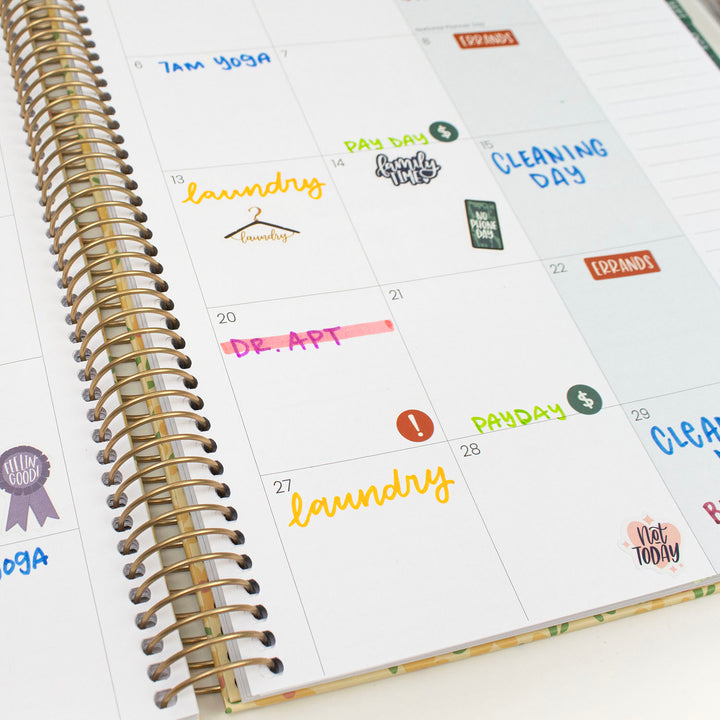 6
7AM YOGA
7
PAY DAY
$
8
ERRANDS
13
laundry
laundry
14
laundry
TIME
NO
PHONE
DAY
15
CLEANING
DAY
20
DR. APT
!
21
PAYDAY
$
22
ERRANDS
27
laundry
28
Not
TODAY
29
FEELIN'
GOOD!